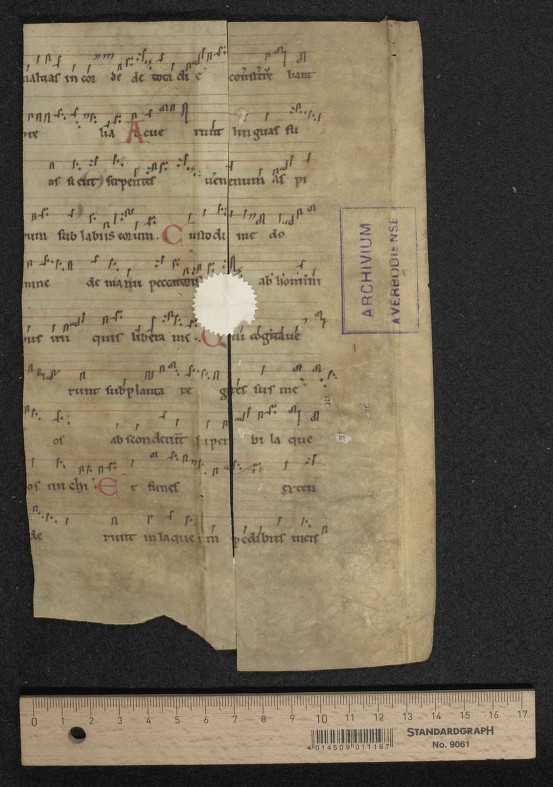 in cor de de tota di e constitue bant
re lia Acue runt linguas su
as sicut serpentes uenenum as pi
rum sub labiis eorum. Custodi me do
mine de manu peccatoris ab homini
bus ini quis libera me. Qui cogitaue
runt subplanta re gressus me
os absconderunt superbi la que
os michi Et funes exten
de runt in laqueum pedibus meis
ARCHIVIUM
AVERBODIENSE
0 1 2 3 4 5 6 7 8 9 10 11 12 13 14 15 16 17
4 014509 011197
STANDARDGRAPH
No. 9061